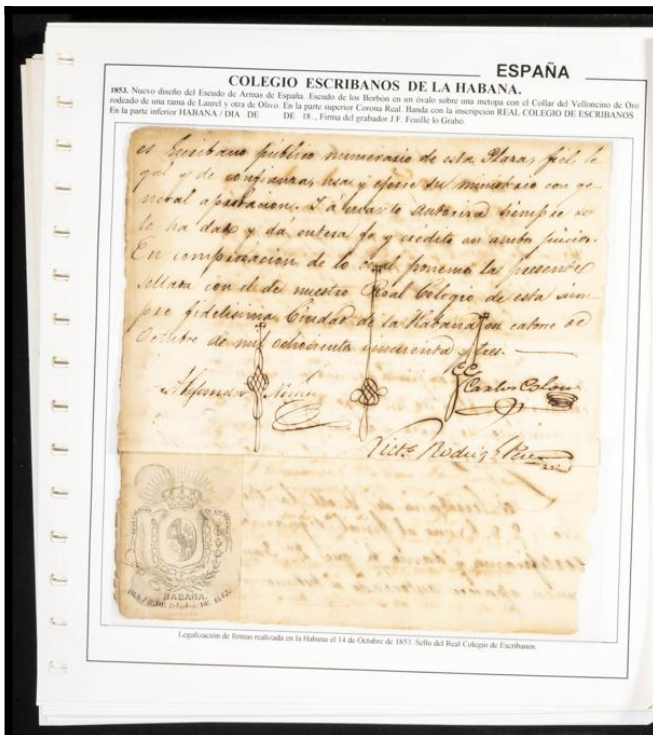 ESPAÑA
COLEGIO ESCRIBANOS DE LA HABANA.
1853. Nuevo diseño del Escudo de Armas de España. Escudo de los Borbón en un óvalo sobre una metopa con el Collar del Velloncino de Oro
rodeado de una rama de Laurel y otra de Olivo. En la parte superior Corona Real. Banda con la inscripción REAL COLEGIO DE ESCRIBANOS
En la parte inferior HABANA / DIA DE DE 18.., Firma del grabador J.F. Feuille lo Grabó.
es Escribano público numerario de esta Plaza, fiel, le
gal y de confianza, usa y ejerce su ministerio con ge
neral aprobacion. Y á cuanto autoriza siempre se
le ha dado y dá entera fe y crédito en ambos juicios.
En comprobacion de lo cual ponemos la presente
sellada con el de nuestro Real Colegio de esta siem
pre fidelisima Ciudad de la Habana en catorce de
Octubre de mil ochocientos cincuenta y tres.
Carlos Colon
Rodrig Perez
REAL COLEGIO DE ESCRIBANOS
HABANA.
DIA DE Octubre DE 1853.
Legalización de firmas realizada en la Habana el 14 de Octubre de 1853. Sello del Real Colegio de Escribanos.